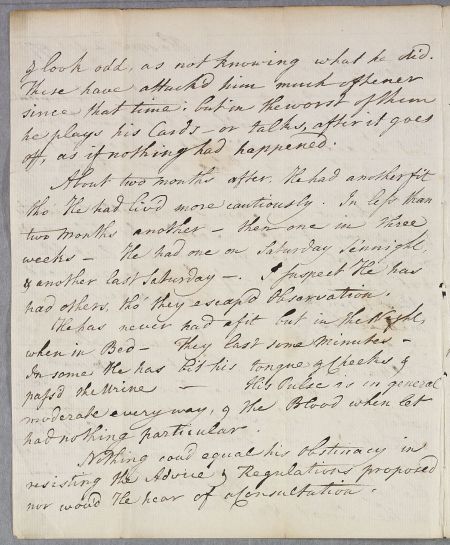 & look odd, as not knowing what he did.
These have attack'd him much oftener
since that time: but in the worst of them
he plays his Cards – or talks, after it goes
off, as if nothing had happened.
About two months after. He had another fit
tho' He had liv'd more cautiously. In less than
two months another – then one in three
weeks – He had one on Saturday sennight
& another last Saturday –. I suspect He has
had others, tho' they escap'd Observation.
He has never had a fit but in the Night,
when in Bed – They last some minutes –
In some He has bit his tongue & Cheeks &
pass'd the Urine – His Pulse is in general
moderate every way, & the Blood when let
had nothing particular.
Nothing coud equal his obstinacy in
resisting the Advice & Regulations proposed
nor woud He hear of a Consultation.